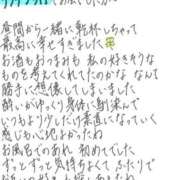 昼間から一緒に乾杯しちゃって
最高に幸せすぎました
お酒もおつまみも 私の好きそうな
ものを考えてくれてたのかな なんて
勝手に想像してしまいました
酔いがゆっくり身体に馴染んで
いつもより少しだけ素直になっていく
感じも心地よかったね
お風呂でのあれ 初めてでした
ずっとずっと気持ちよくて ふたりで